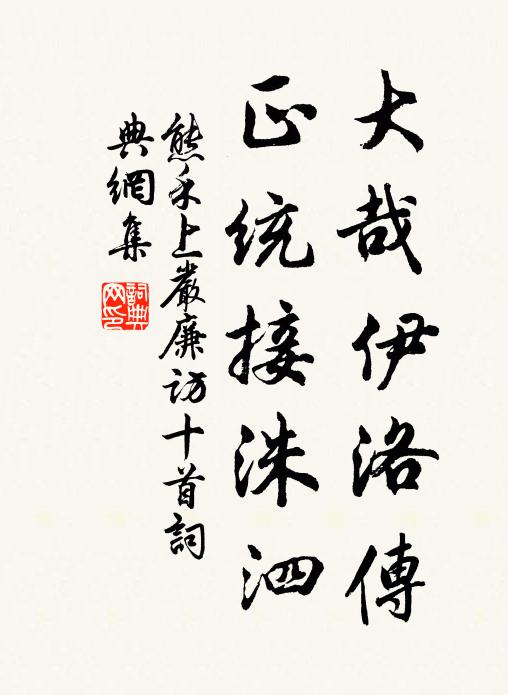 大哉伊洛傳
正統接洙泗
熊禾上嚴廉訪十首詞
典網集
詞典
网印